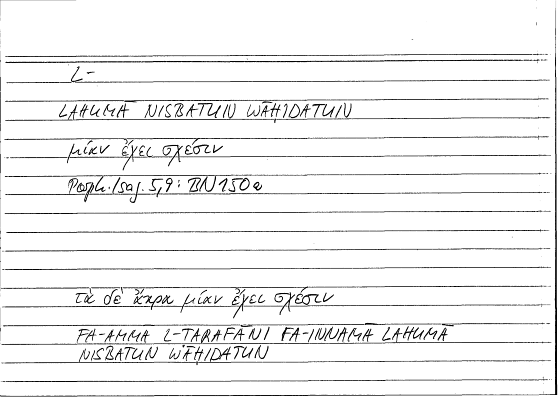 L-
LAHUMĀ NISBATUN WĀḤIDATUN
μίαν ἔχει σχέσιν
Porph. Isag. 5,9: BN 150a
τὰ δὲ ἄκρα μίαν ἔχει σχέσιν
FA-AMMA L-ṬARAFĀNI FA-INNAMA LAHUMĀ
NISBATUN WĀḤIDATUN